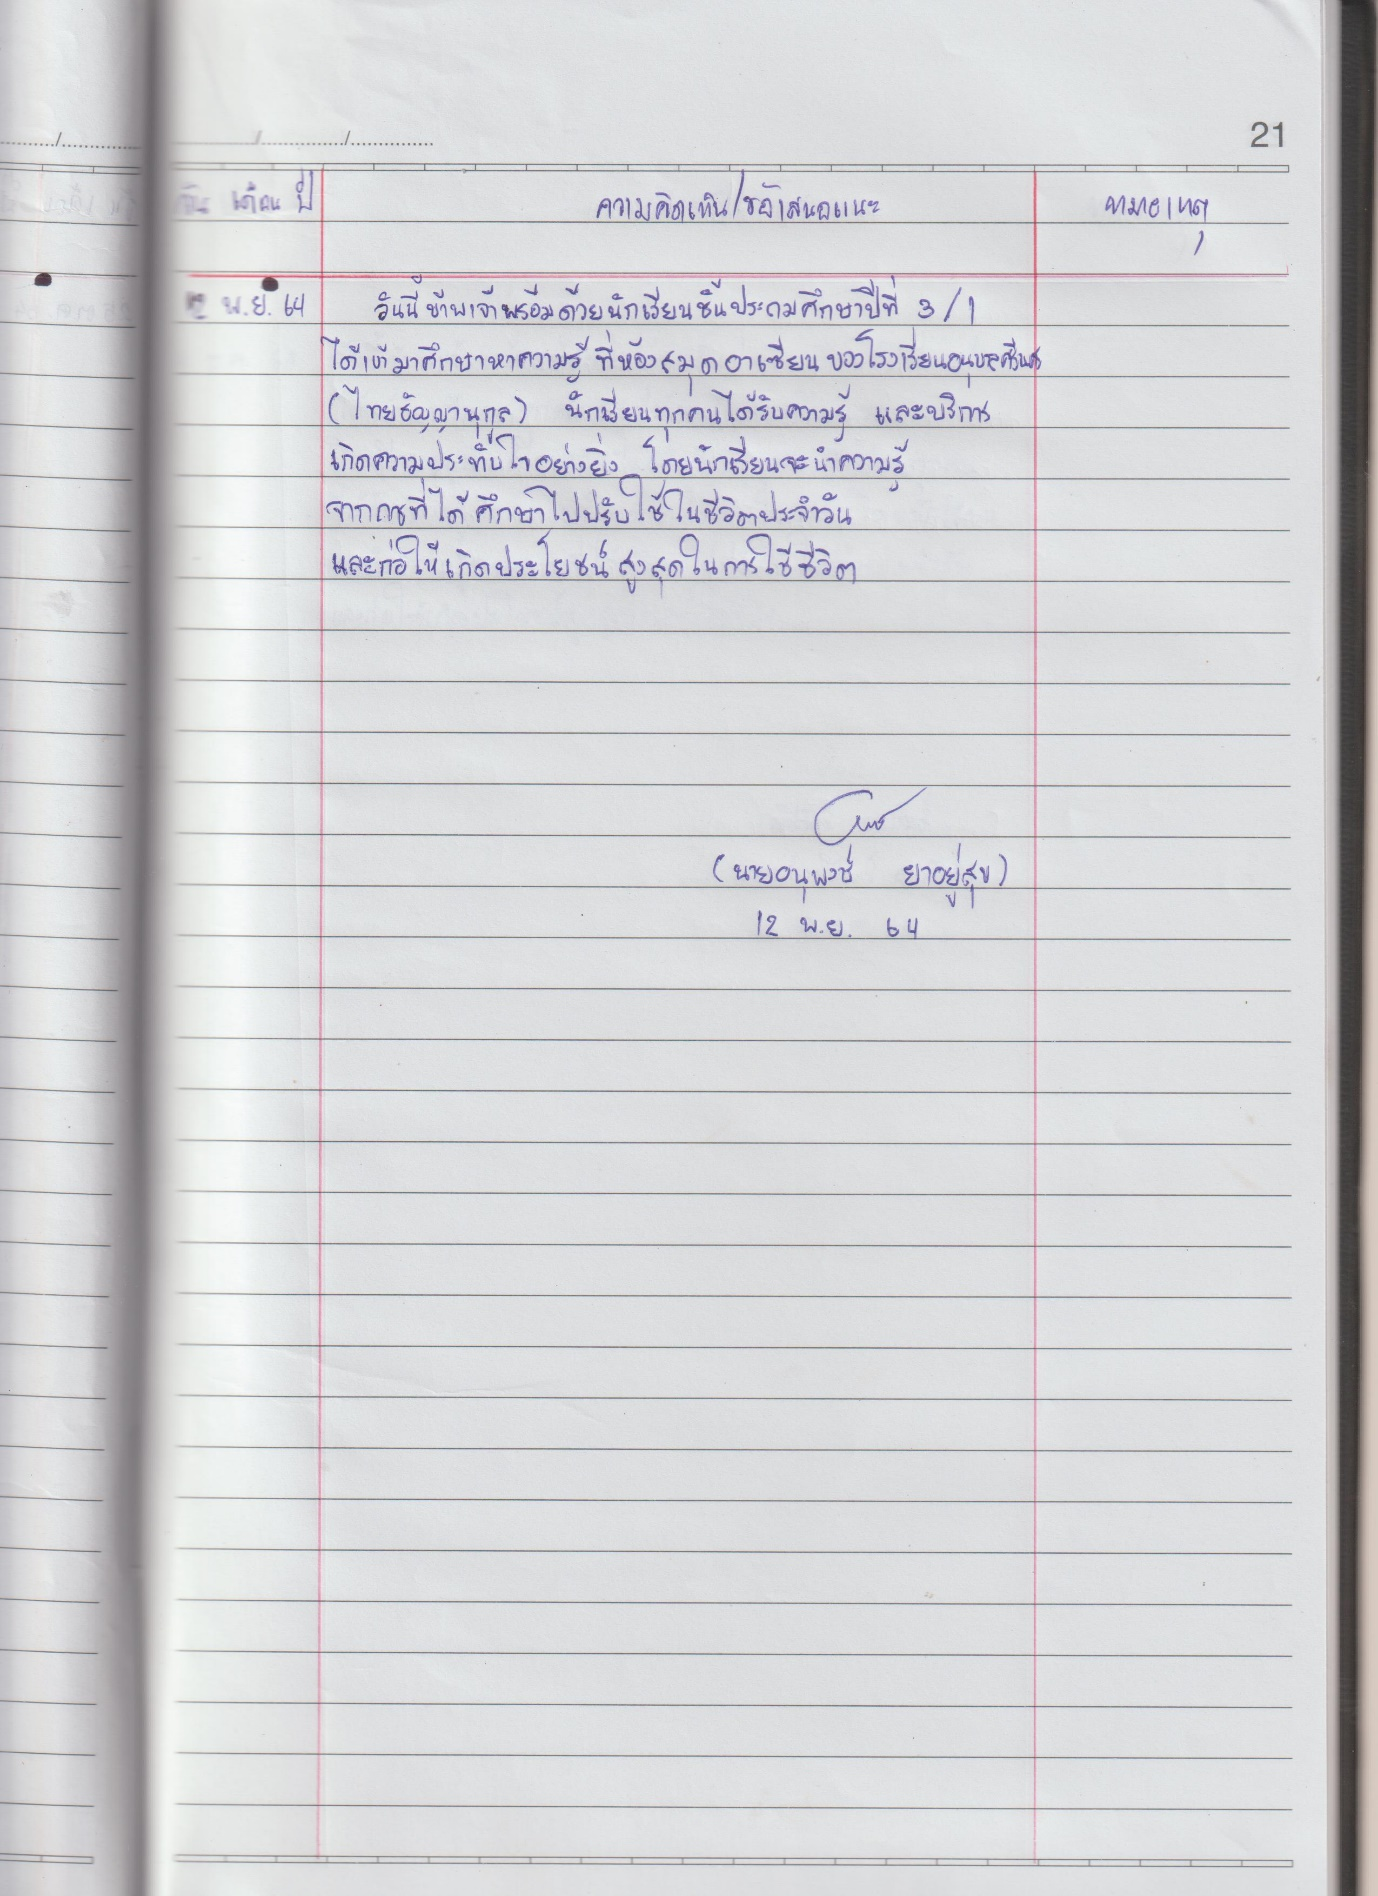 21
วัน เดือน ปี ความคิดเห็น/ข้อเสนอแนะ หมายเหตุ
พ.ย. 64 วันนี้ข้าพเจ้าพร้อมด้วยนักเรียนชั้นประถมศึกษาปีที่ 3/1
ได้เข้ามาศึกษาหาความรู้ ที่ห้องสมุดอาเซียน ของโรงเรียน
(ไทยรัฐญานุกูล) นักเรียนทุกคนได้รับความรู้ และบริการ
เกิดความประทับใจอย่างยิ่ง โดยนักเรียนจะนำความรู้
จากการที่ได้ศึกษาไปปรับใช้ในชีวิตประจำวัน
และก่อให้เกิดประโยชน์สูงสุดในการใช้ชีวิต
(นายอนุพงษ์ ยาอยู่สุข)
12 พ.ย. 64